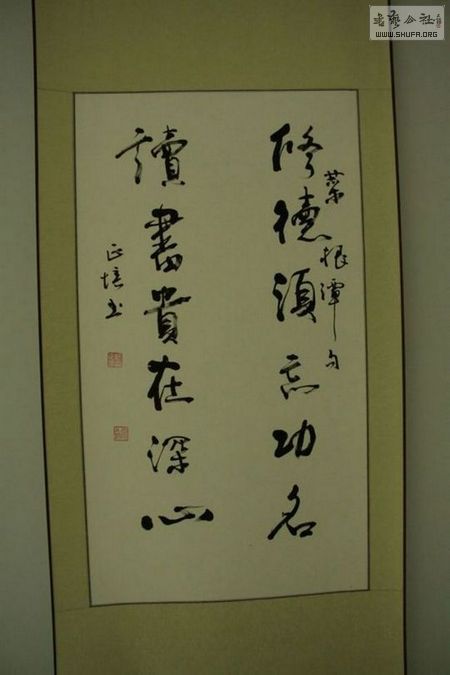 修德須忘功名
菜根譚句
讀書貴在深心
正培书
書藝公社
WWW.SHUFA.ORG